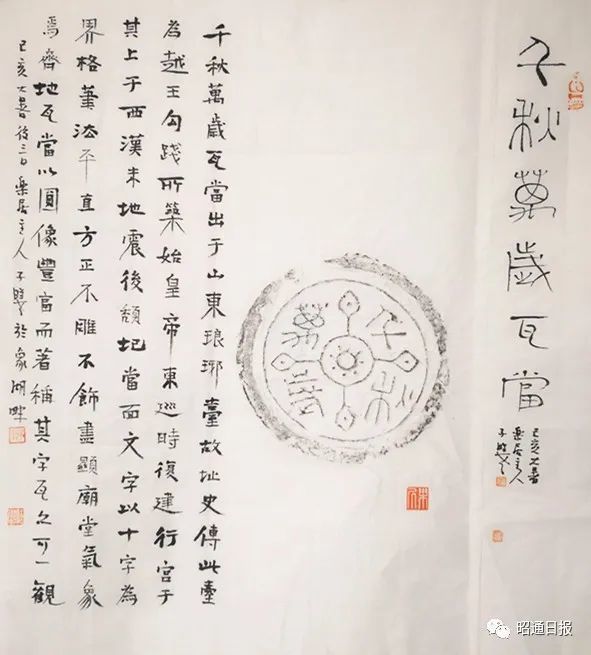 千秋萬歲瓦當
己亥大暑
樂居主人
千秋萬歲
千秋萬歲瓦當出于山東琅琊臺故址史傳此臺
為越王勾踐所築始皇帝東巡時復建行宮于
其上于西漢末地震後頹圮當面文字以十字為
界格筆法平直方正不雕不飾盡顯廟堂氣象
焉齊地瓦當以圓像豐富而著稱其字瓦之可一觀
己亥大暑後三日樂居主人子於象湖畔
昭通日报